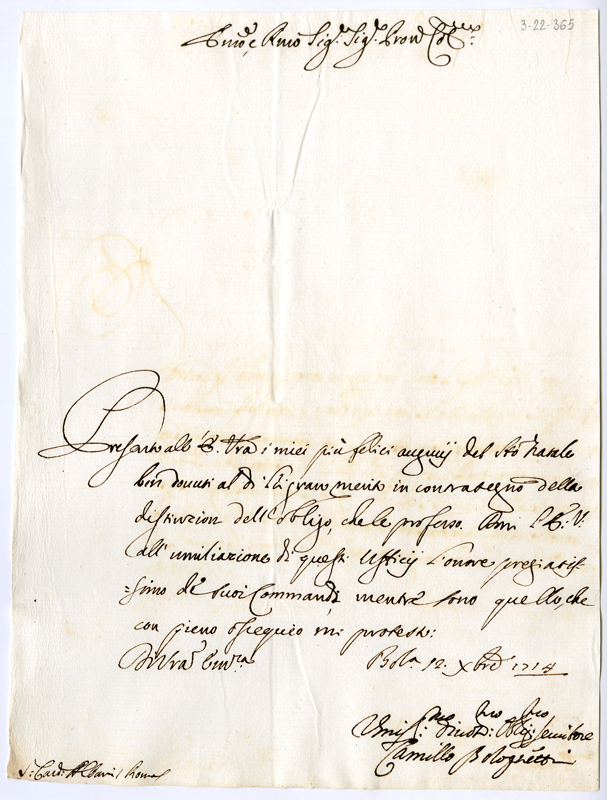 3-22-365
Emo, e Rmo Sig.r Sig.r Pron Col.mo
Presento all' E. Vra i miei più felici augurij del Sto Natale
ben dovuti al di Lei gran merito in contrasegno della
distinzion dell' obligo, che le professo. Ami l'E. V.
all' umiliazione di questi Ufficij l'onore pregiatis-
=simo de' suoi Commandi, mentre sono quello, che
con pieno ossequio mi protesto:
Di Vra Em.za Bola 12. Xbre 1714
Umis.mo divot.mo Oblig.mo servitore
Camillo Bolognetti
S.r Card. Albani / Roma